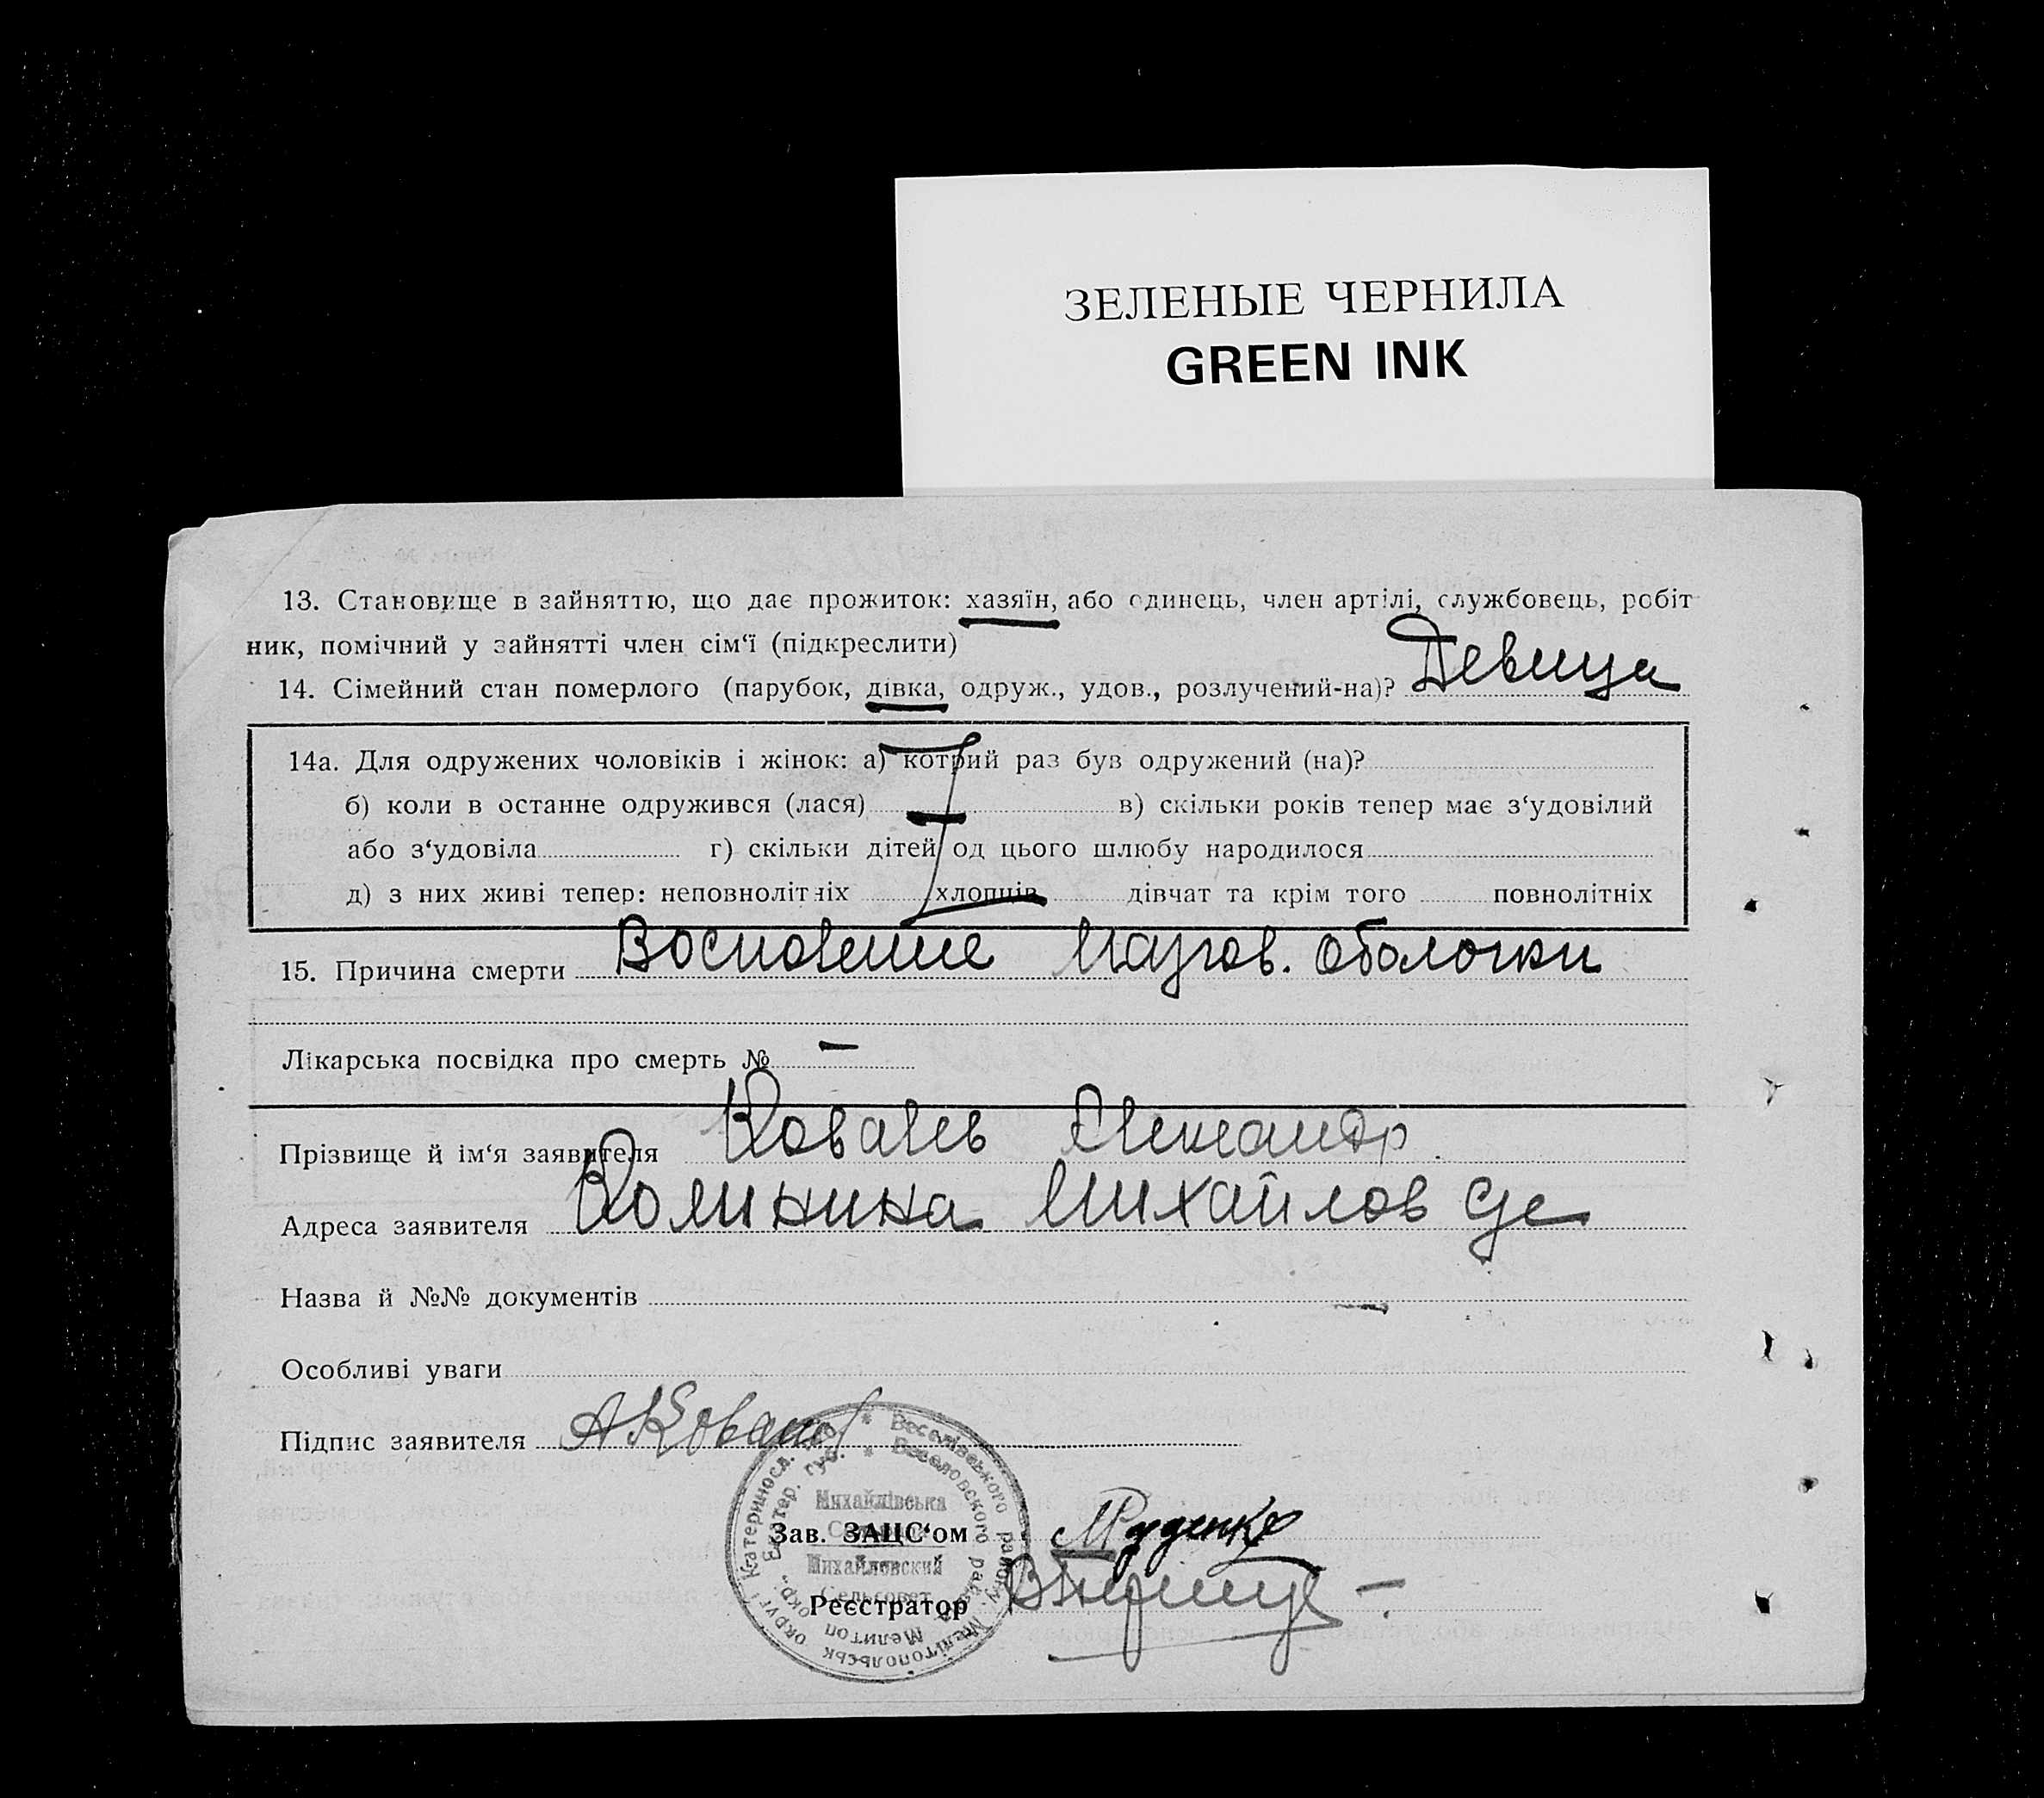 ЗЕЛЕНЫЕ ЧЕРНИЛА
GREEN INK
13. Становище в зайняттю, що дає прожиток: хазяїн, або одинець, член артілі, службовець, робіт
ник, помічний у зайнятті член сім‘ї (підкреслити)
14. Сімейний стан померлого (парубок, дівка, одруж., удов., розлучений-на)? Девица
14а. Для одружених чоловіків і жінок: а) котрий раз був одружений (на)?
б) коли в останне одружився (лася) в) скільки років тепер має з‘удовілий
або з‘удовіла г) скільки дітей од цього шлюбу народилося
д) з них живі тепер: неповнолітніх хлопців дівчат та крім того повнолітніх
15. Причина смерти Восполение Мозгов. оболочки
Лікарська посвідка про смерть № —
Прізвище й ім‘я заявителя Ковалев Александр
Адреса заявителя Михайлов
Назва й №№ документів
Особливі уваги
Підпис заявителя АКовалев
Катериносл. * Веселівського району Мелітопольськ округ
Екатер. губ. * Веселовского района Мелитоп окр.
Михайлівська
Зав. ЗАЦС‘ом Руденко
Михайловский
Сельсовет
Реєстратор